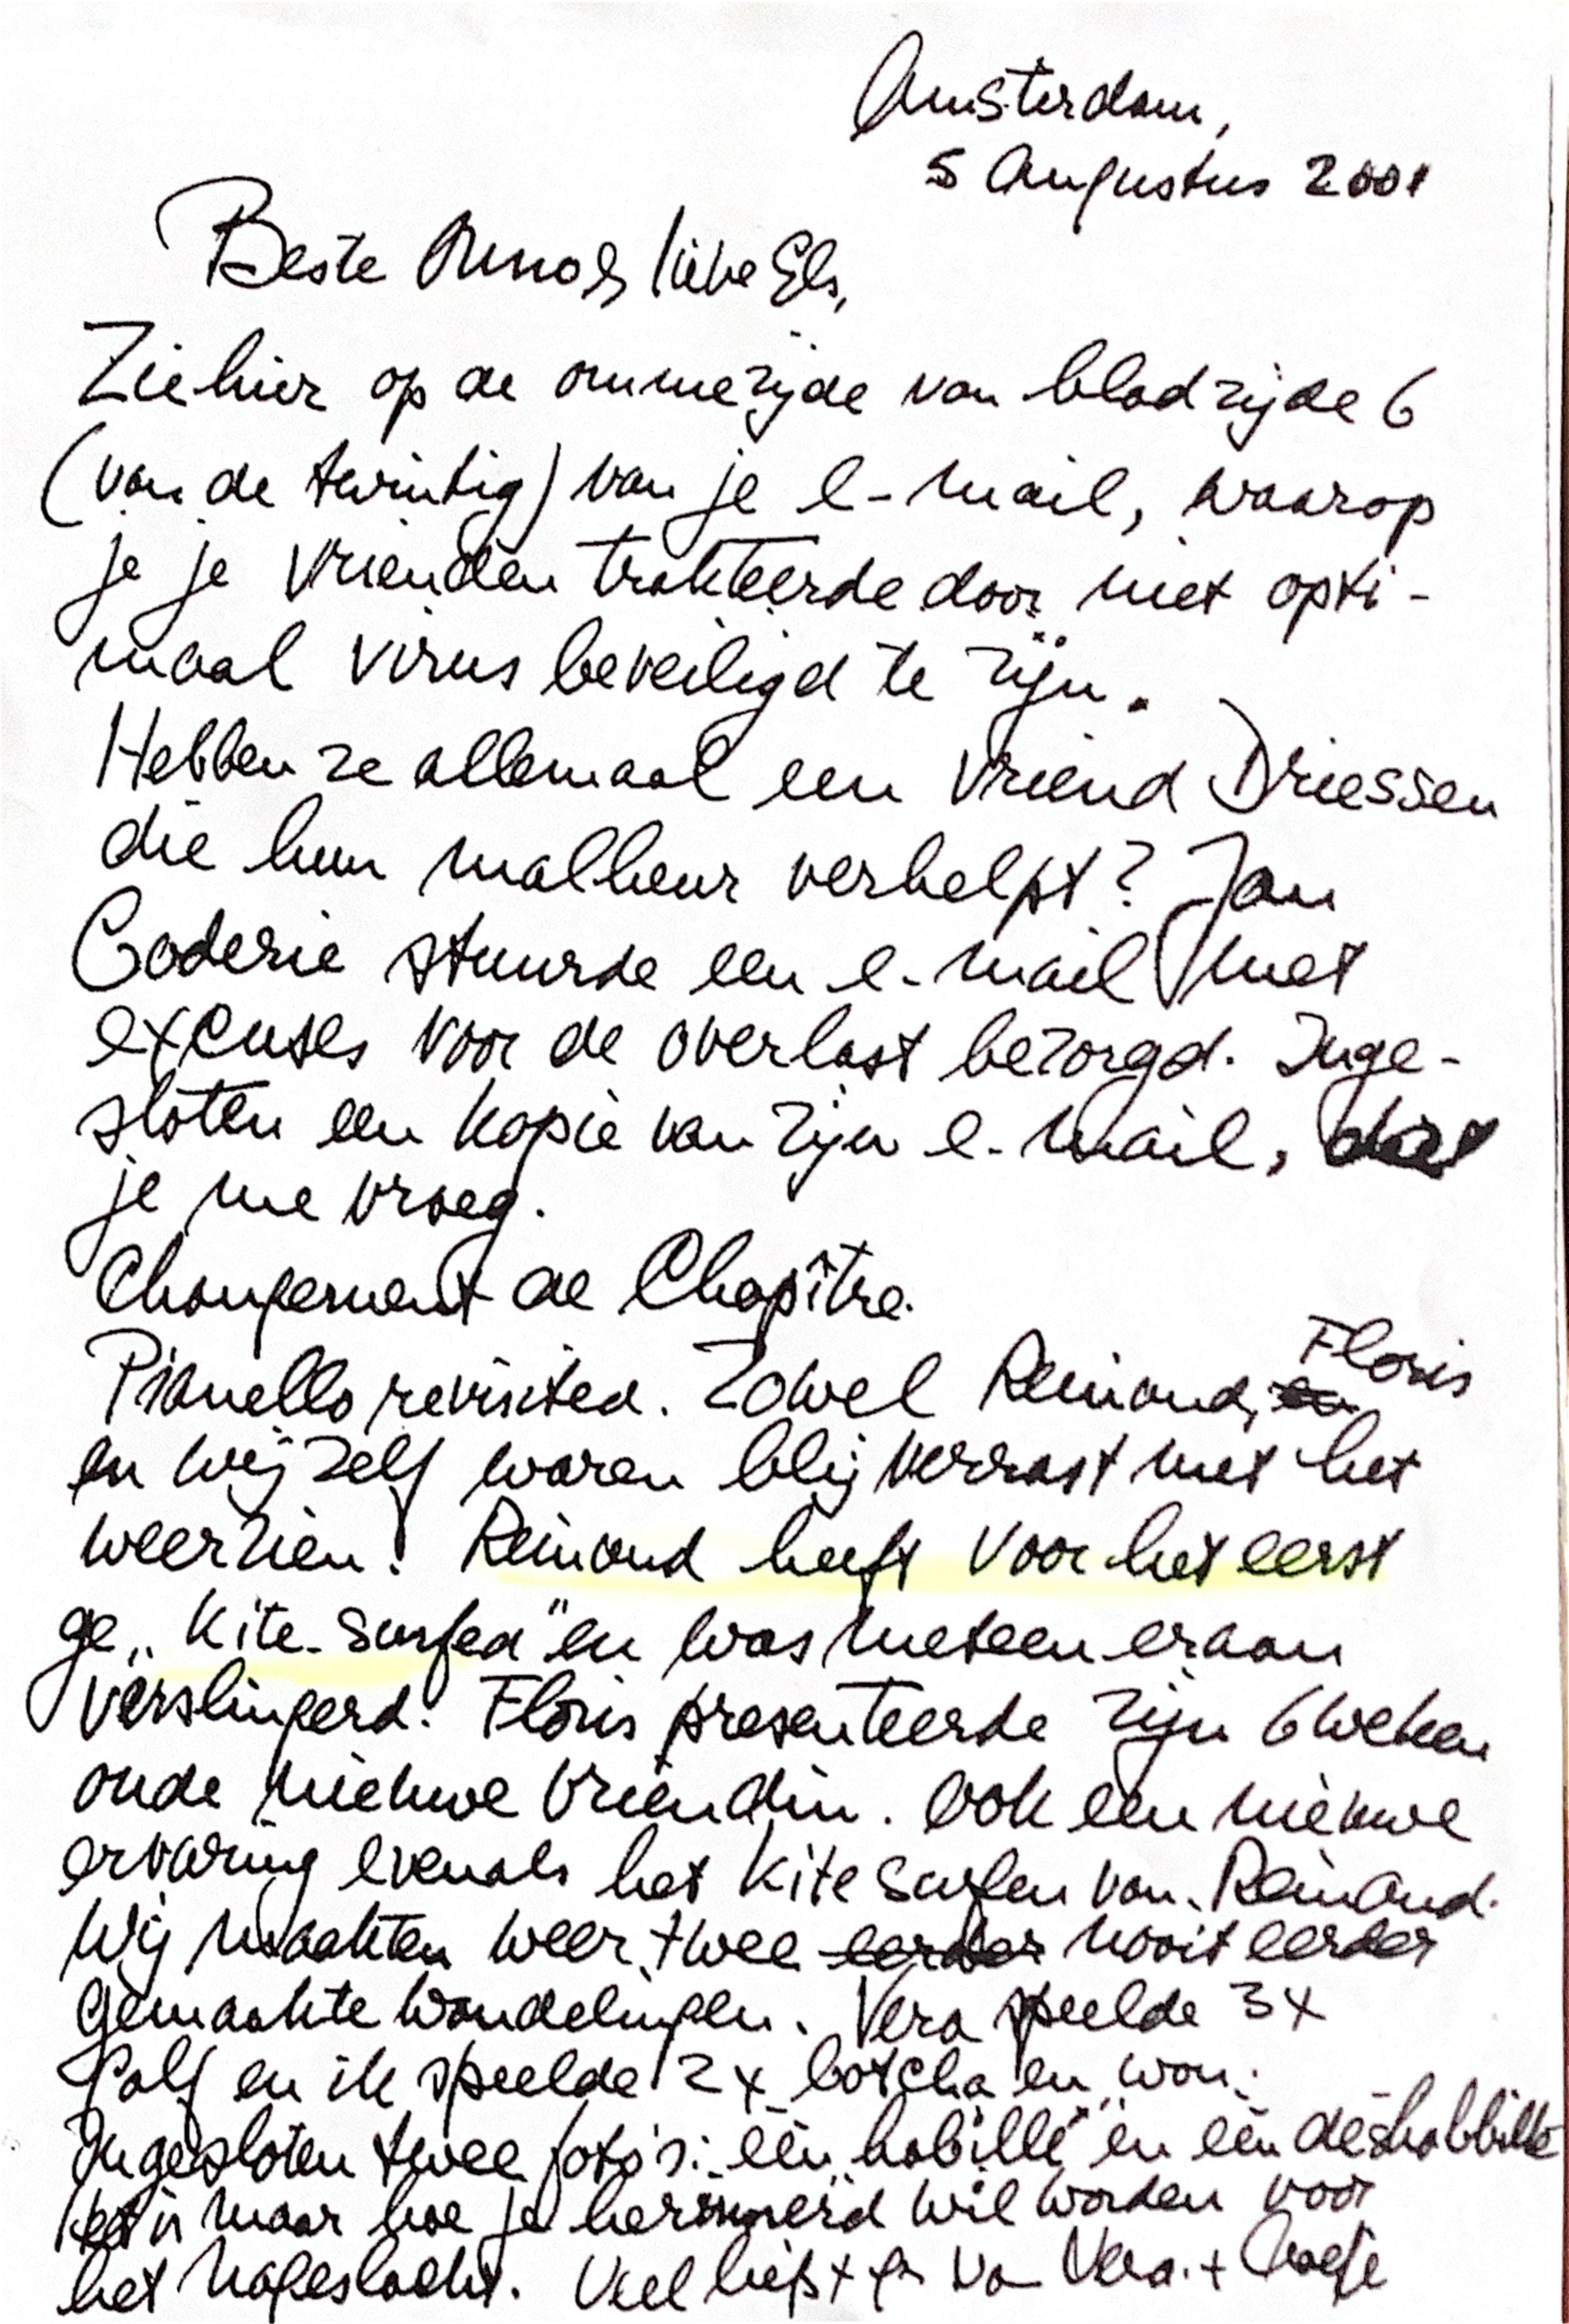 Amsterdam,
5 Augustus 2001
Beste Arnold, lieve Els,
Ziehier op de ommezijde van bladzijde 6
(van de twintig) van je e-mail, waarop
je je vrienden trakteerde door niet opti-
maal virus beveiligd te zijn.
Hebben ze allemaal een vriend Driessen
die hun malheur verhelpt? Jan
Coderie stuurde een e-mail met
excuses voor de overlast bezorgd. Inge-
sloten een kopie van zijn e-mail, dat
je me vroeg.
Changement de Chapître.
Pianello revisited. Zowel Reinoud, Floris
en wij zelf waren blij verrast met het
weerzien! Reinoud heeft voor het eerst
ge„Kite-surfed" en was meteen eraan
verslingerd. Floris presenteerde zijn 6 weken
oude nieuwe vriendin. Ook een nieuwe
ervaring evenals het Kite surfen van Reinoud.
Wij maakten weer twee eerder nooit eerder
gemaakte wandelingen. Vera speelde 3x
Golf en ik speelde 2x botcha en won.
Ingesloten twee foto's: één "habillé" en één deshabbillé
Het is maar hoe je herinnerd wil worden voor
het nageslacht. Veel liefs + gr va Vera. +